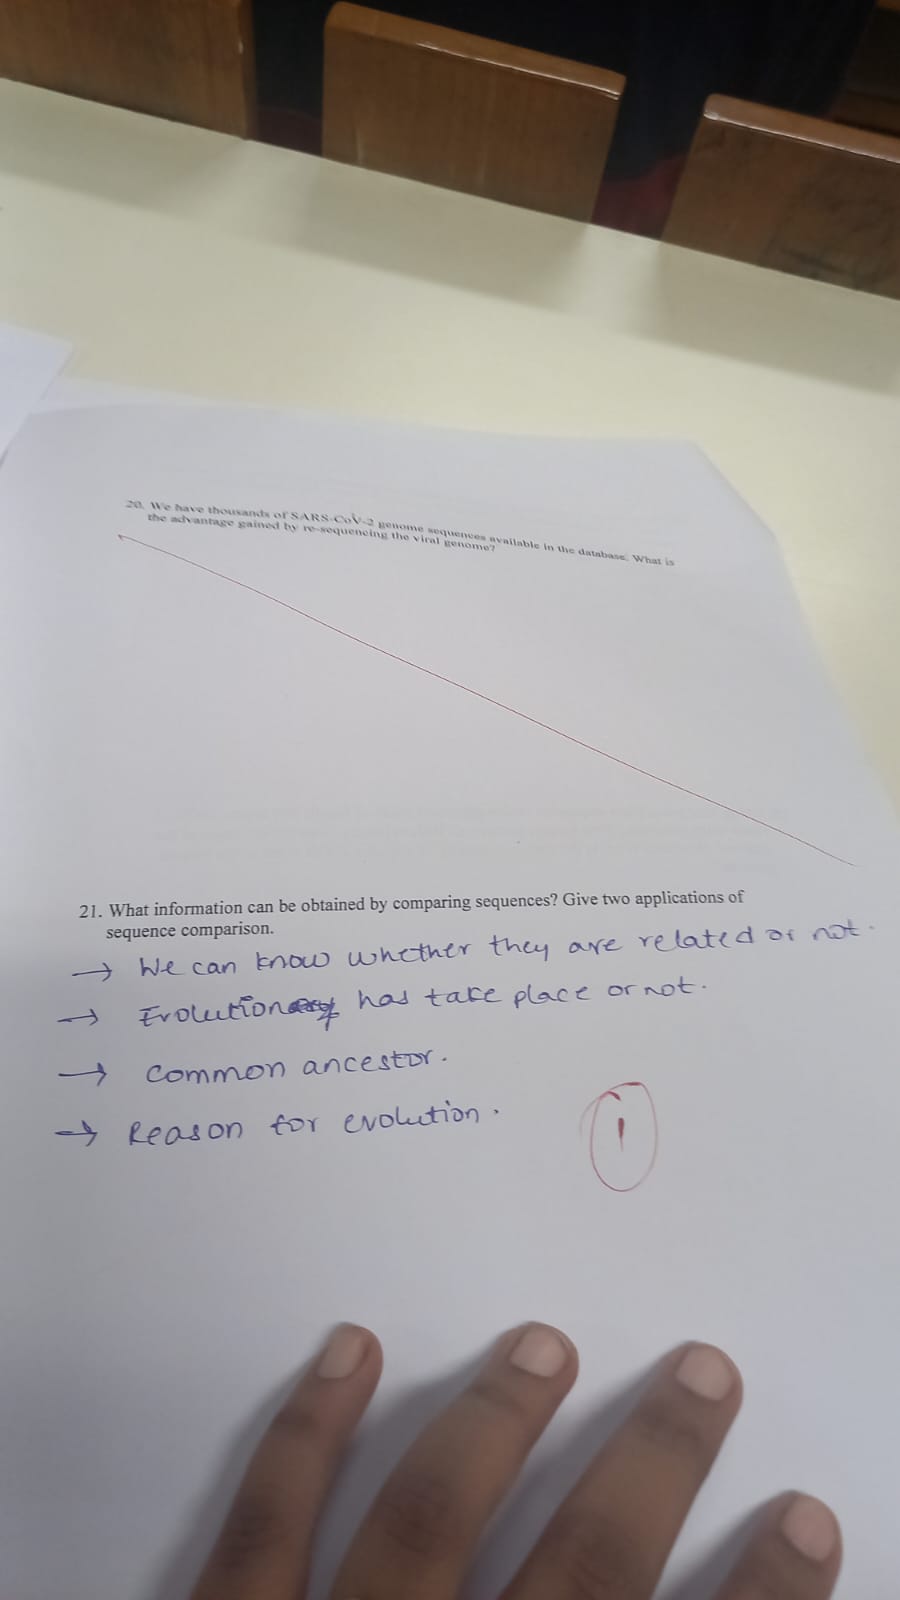 20. We have thousands of SARS-CoV-2 genome sequences available in the database. What is
the advantage gained by re-sequencing the viral genome?
21. What information can be obtained by comparing sequences? Give two applications of
sequence comparison.
→ We can know whether they are related or not.
→ Evolution has take place or not.
→ Common ancestor.
→ Reason for evolution.
1